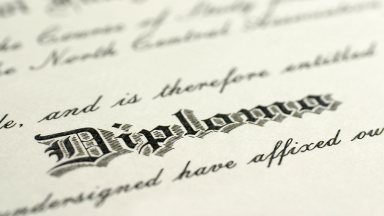 the Course of Study
the North Central Association
le, and is therefore entitled
Diploma
undersigned have affixed ou